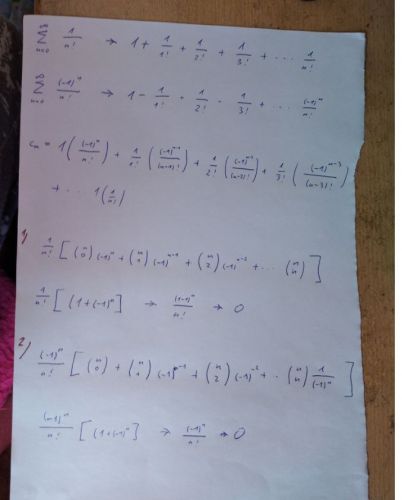 ∞ Σ n=0 1/n! → 1 + 1/1! + 1/2! + 1/3! + ... 1/n!
∞ Σ n=0 (-1)^n/n! → 1 - 1/1! + 1/2! - 1/3! + ... (-1)^n/n!
c_n = 1((-1)^n/n!) + 1/1! ((-1)^{n-1}/(n-1)!) + 1/2! ((-1)^{n-2}/(n-2)!) + 1/3! ((-1)^{n-3}/(n-3)!)
+ ... 1(1/n!)
1) 1/n! [(n 0)(-1)^n + (n 1)(-1)^{n-1} + (n 2)(-1)^{n-2} + ... (n n)]
1/n! [(1+(-1)^n] → (1-1)^n/n! → 0
2) (-1)^n/n! [(n 0) + (n 1)(-1)^{-1} + (n 2)(-1)^{-2} + .. (n n) 1/(-1)^n]
(-1)^n/n! [(1+(-1)^n] → (-1)^n/n! → 0